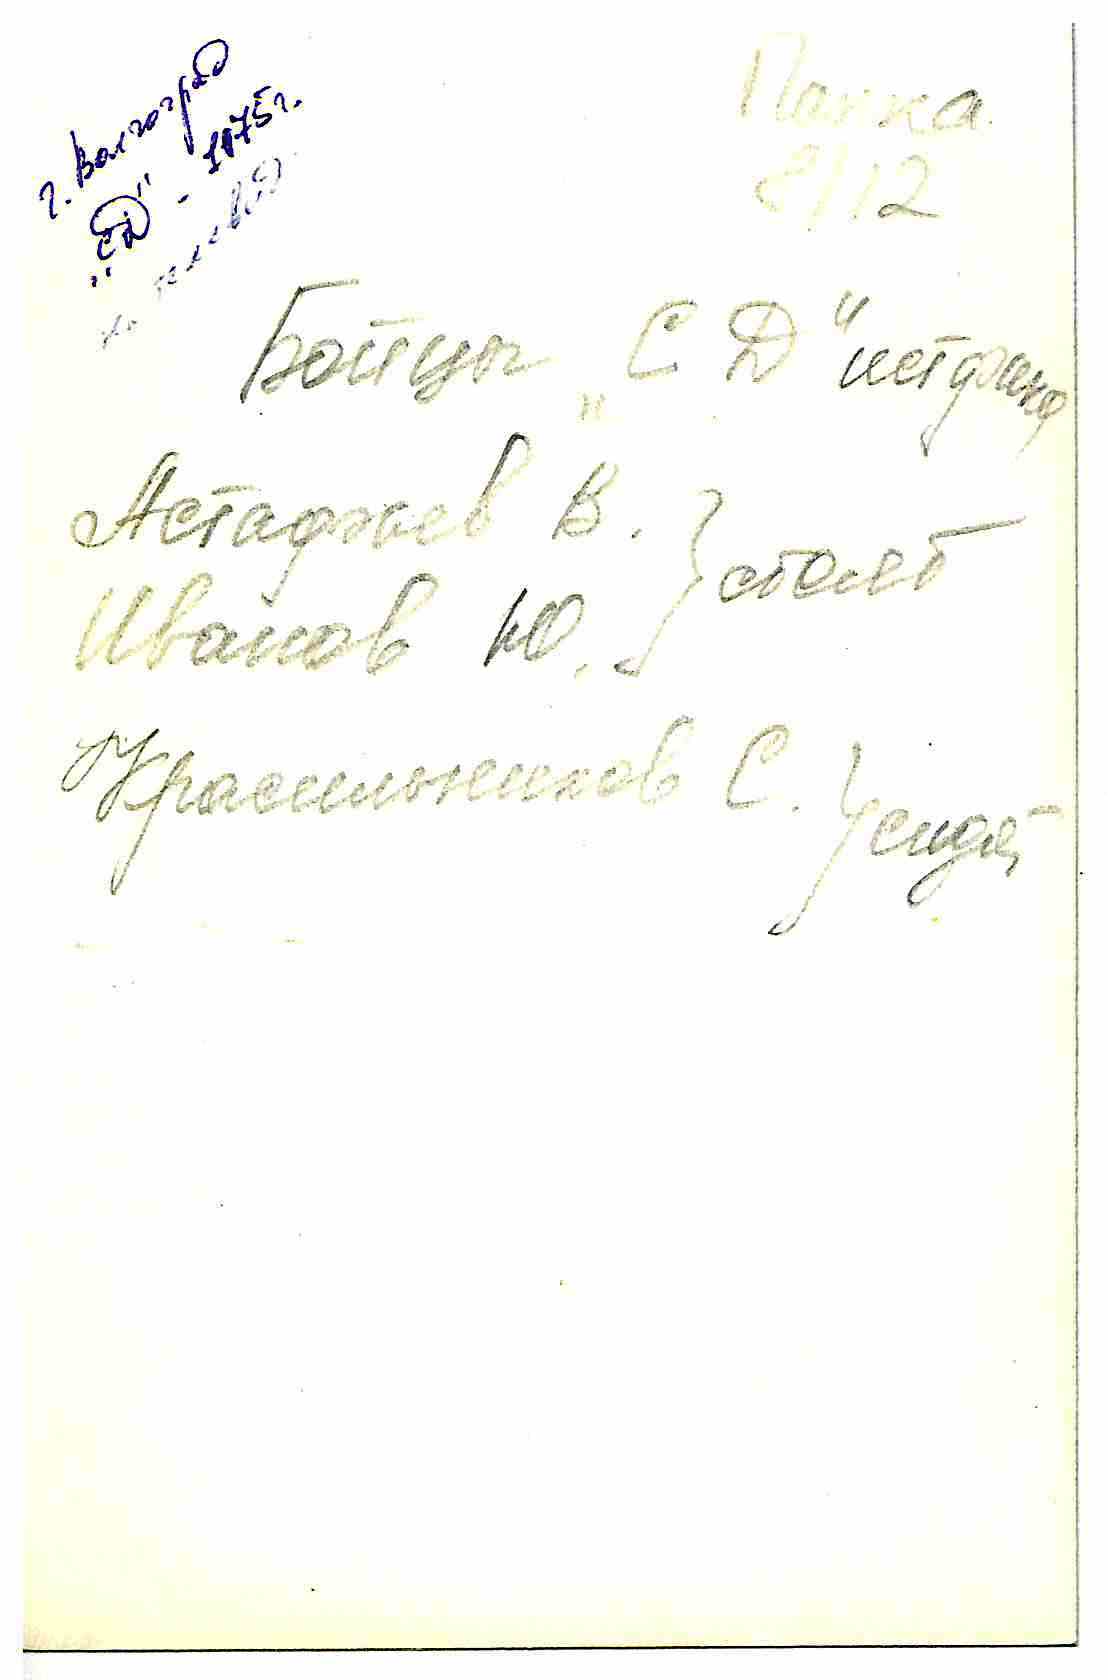 г. Волгоград
„СД" - 1975г.
Папка
8/12
Бойцы „СД" истфака
Астафьев В.
Иванов Ю. } стоят
Красильников С. } сидят